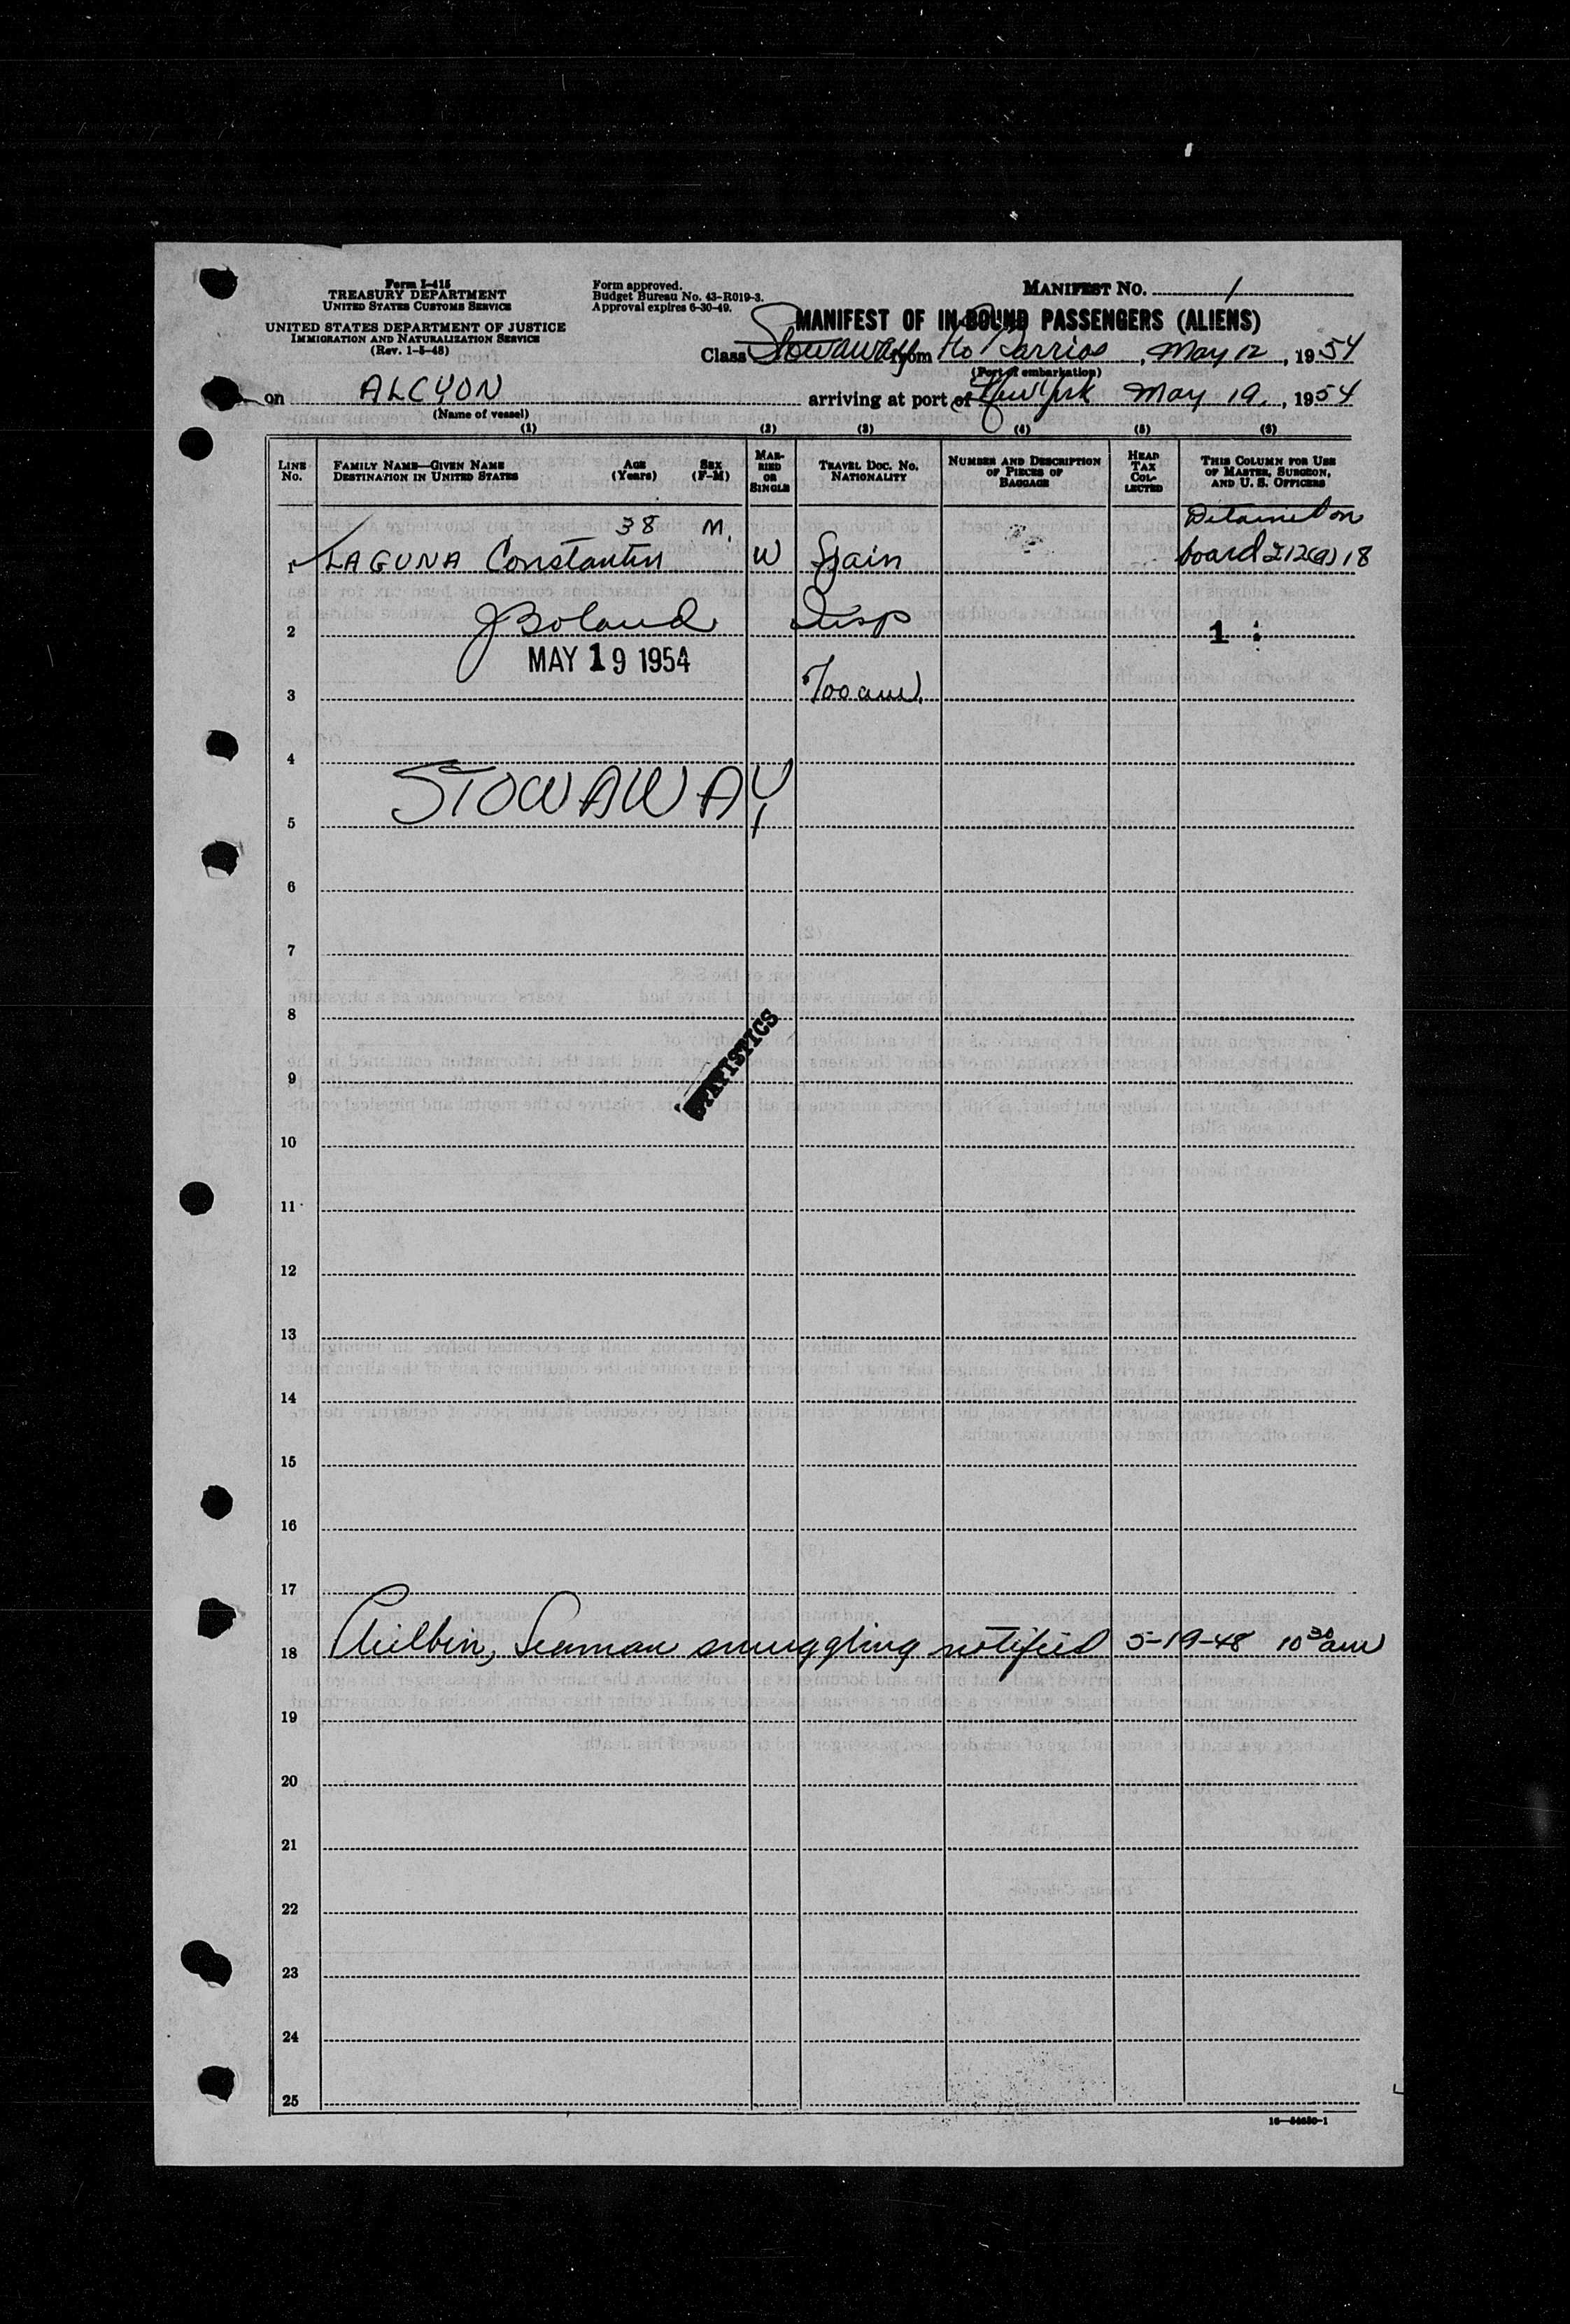 Form I-415
TREASURY DEPARTMENT
UNITED STATES CUSTOMS SERVICE
UNITED STATES DEPARTMENT OF JUSTICE
IMMIGRATION AND NATURALIZATION SERVICE
(Rev. 1-5-48)
Form approved.
Budget Bureau No. 43-R019-3.
Approval expires 6-30-49.
MANIFEST NO. 1
MANIFEST OF IN-BOUND PASSENGERS (ALIENS)
Class Stowaway from Pto Barrios, May 12, 1954
(Port of embarkation)
on ALCYON arriving at port of New York May 19, 1954
(Name of vessel)
(1) (2) (3) (4) (5) (6)
LINE No. FAMILY NAME—GIVEN NAME DESTINATION IN UNITED STATES AGE (Years) SEX (F-M) MARRIED OR SINGLE TRAVEL DOC. NO. NATIONALITY NUMBER AND DESCRIPTION OF PIECES OF BAGGAGE HEAD TAX COLLECTED THIS COLUMN FOR USE OF MASTER, SURGEON, AND U. S. OFFICERS
38 M. Detained on
1 LAGUNA Constantin W Spain board 212(a)18
2 JBoland Insp 1
MAY 19 1954
3 700 am
4
STOWAWAY
5
6
7
8
STATISTICS
9
10
11
12
13
14
15
16
17
18 Philbin, Seaman smuggling notified 5-19-48 10 30 am
19
20
21
22
23
24
25